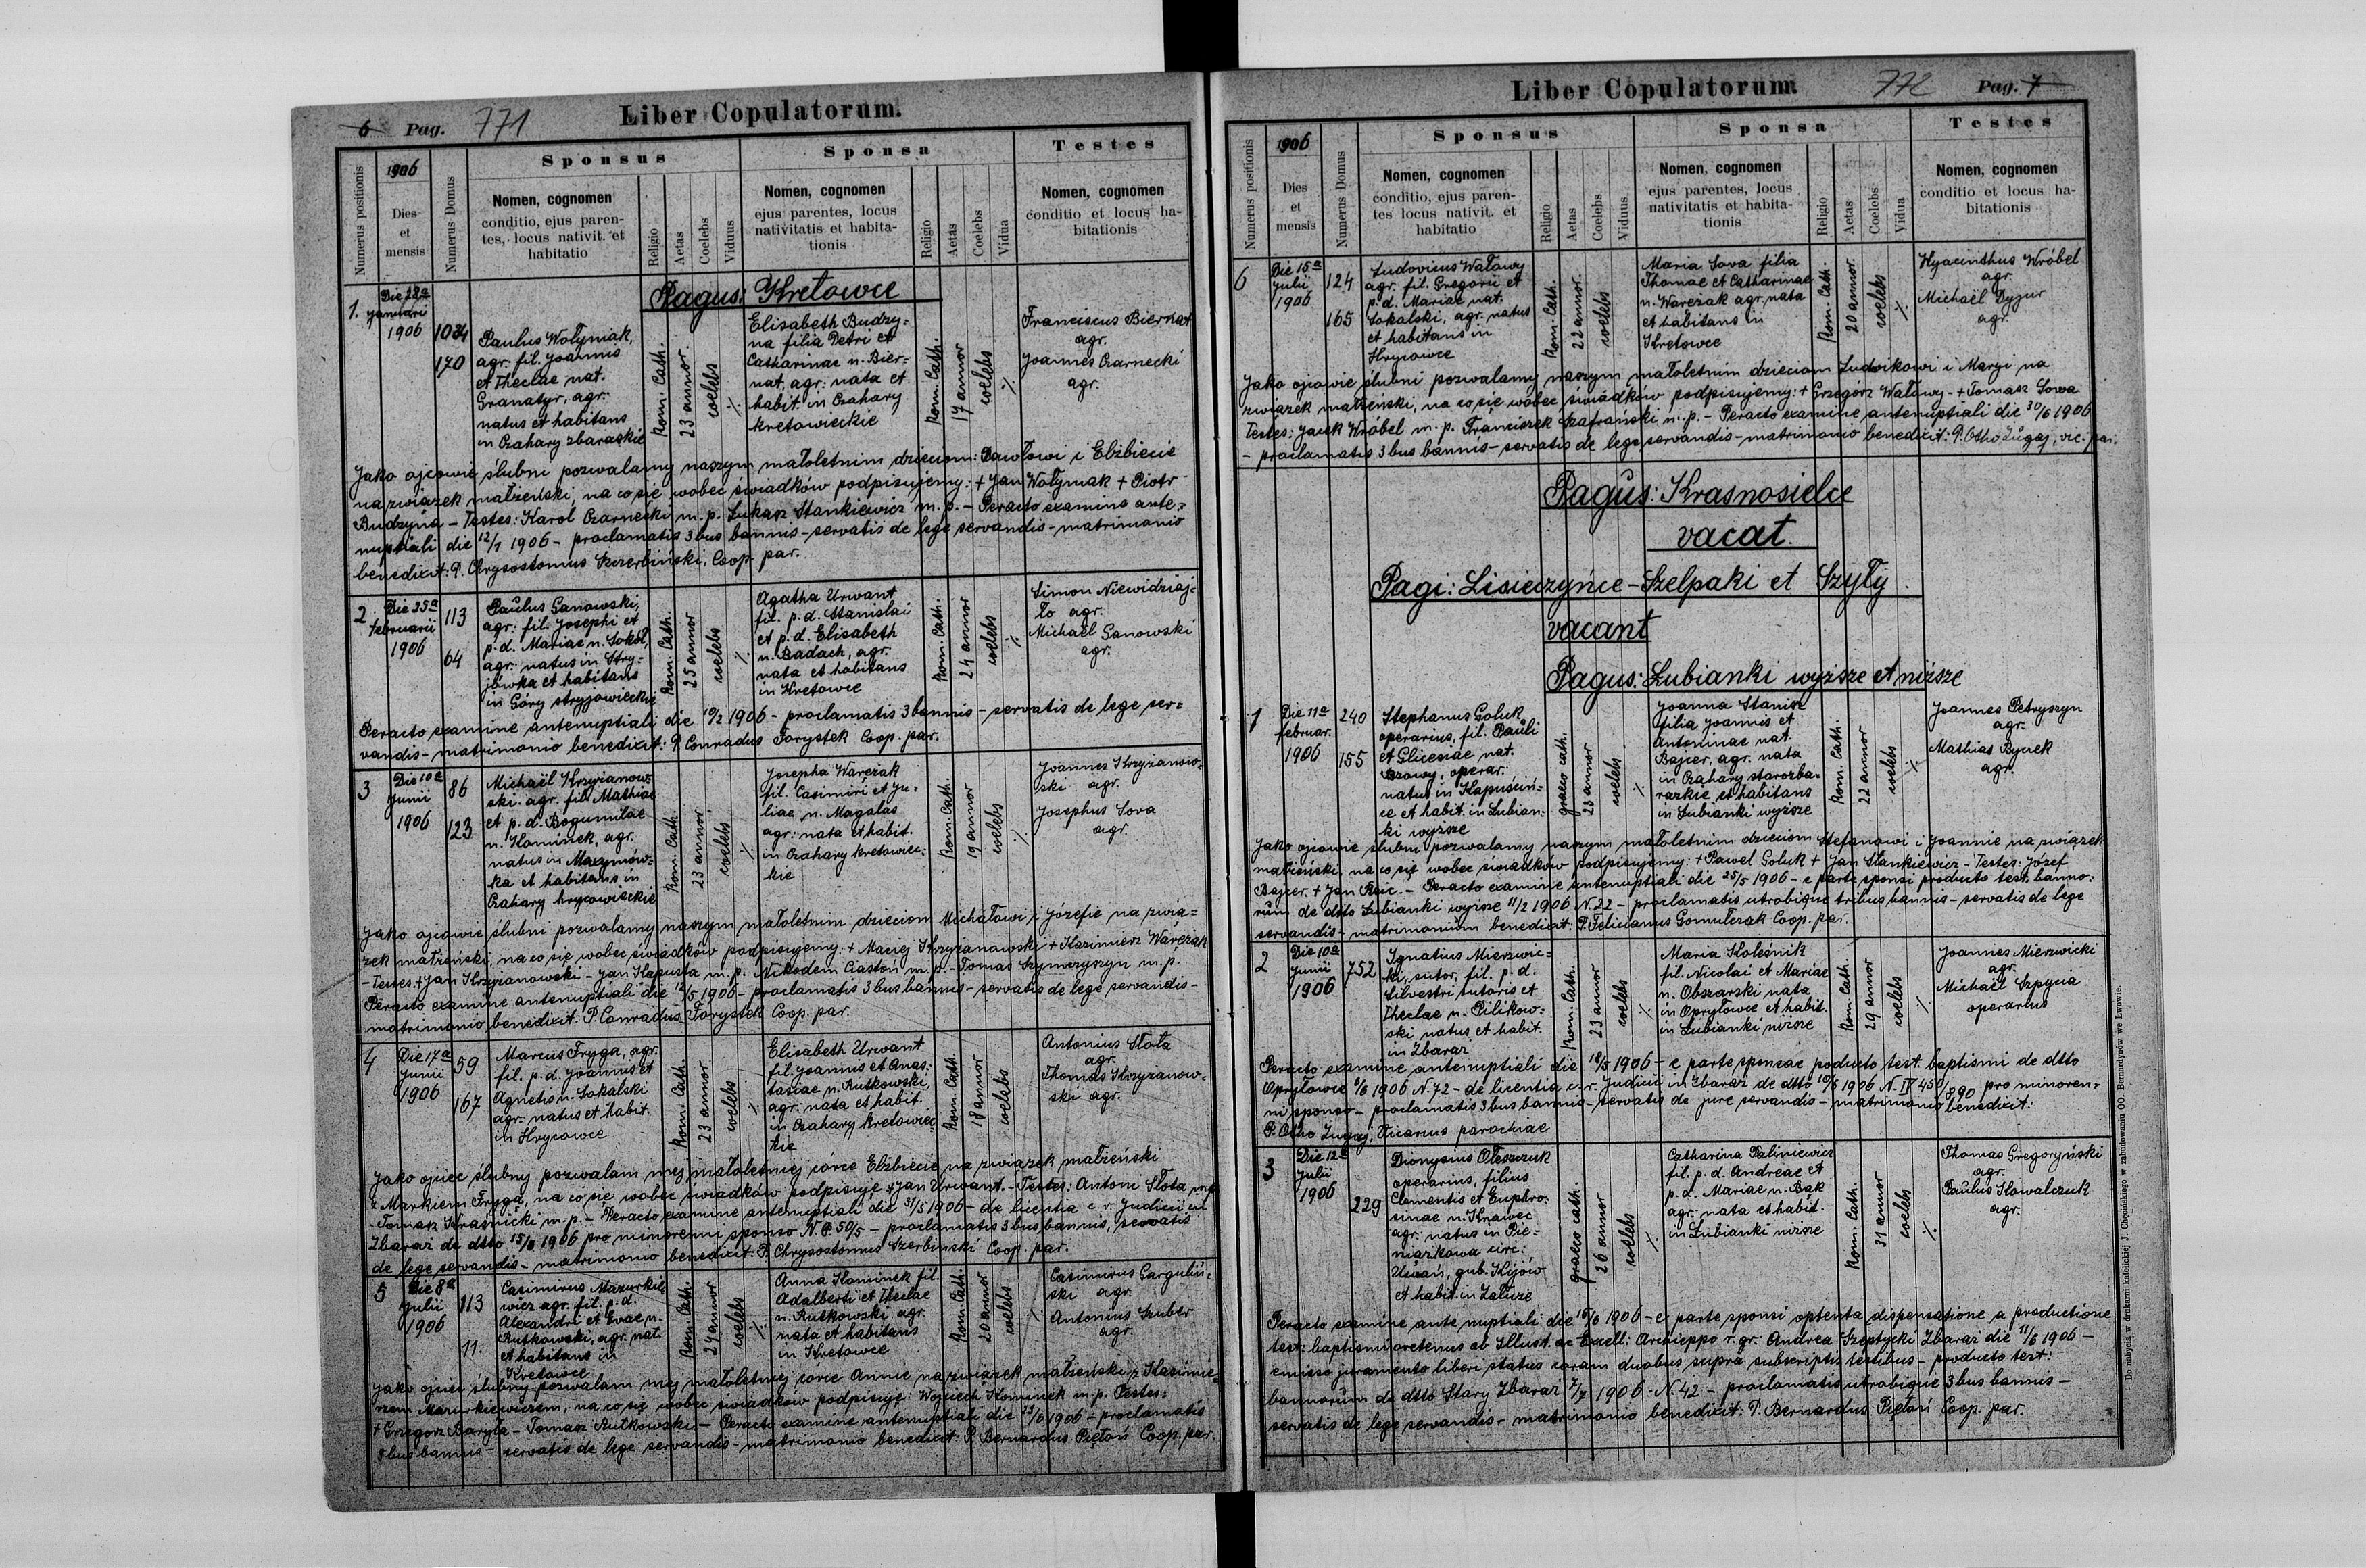 6 Pag. 771
Liber Copulatorum.
Numerus positionis
1906
Dies et mensis
Numerus Domus
Sponsus
Nomen, cognomen
conditio, ejus paren-
tes, locus nativit. et
habitatio
Religio
Aetas
Coelebs
Viduus
Sponsa
Nomen, cognomen
ejus parentes, locus
nativitatis et habita-
tionis
Religio
Aetas
Coelebs
Vidua
Testes
Nomen, cognomen
conditio et locus ha-
bitationis
Pagus: Kretowce
1.
Januarii
1906
170
Paulus Wołyniak,
agr. fil. Joannis
et Theclae nat.
Granatyr, agr.
natus et habitans
in Czahary zbaraskie
Rom. Cath.
23 annor.
coelebs
Elisabeth Budzy-
na filia Petri et
Catharinae n. Bier-
nat, agr. nata et
habit. in Czahary
kretowieckie
Rom. Cath.
17 annor
coelebs
Franciscus Biernat
agr.
Joannes Czarnecki
agr.
Jako ojcowie ślubni pozwalamy naszym małoletnim dzieciom: Pawłowi i Elżbiecie
na związek małżeński, na co się wobec świadków podpisujemy: + Jan Wołyniak + Piotr
Budzyna – Testes: Karol Czarnecki m. p. Łukasz Stankiewicz m. p. – Peracto examine ante-
nuptiali die 12/1 1906 – proclamatis 3 bus bannis – servatis de lege servandis – matrimonio
benedixit: P. Chrysostomus Szczerbiński, Coop. par.
2.
Die 25a
Februarii
1906
113
64
Paulus Sanowski,
agr: fil. Josephi et
p. d. Mariae n. Sokół,
agr. natus in Stry-
jówka et habitans
in Góry stryjowieckie
Rom. Cath.
25 annor
coelebs
Agatha Urwant
fil. p. d. Stanislai
et p. d. Elisabeth
n. Badach, agr.
nata et habitans
in Kretowce
Rom. Cath.
24 annor
coelebs
Simon Niewidziaj-
ło agr.
Michaël Sanowski
agr.
Peracto examine antenuptiali die 10/2 1906 – proclamatis 3 bannis – servatis de lege ser-
vandis – matrimonio benedixit: P. Conradus Forystek Coop. par.
3
Die 10a
Junii
1906
86
123
Michaël Krzyżanow-
ski agr. fil. Mathiae
et p. d. Bogumilae
n. Kominek, agr.
natus in Maxymów-
ka et habitans in
Czahary hrycowieckie
Rom. Cath.
23 annor
coelebs
Josepha Wareżak
fil. Casimiri et Ju-
liae n. Magalas
agr: nata et habit.
in Czahary kretowiec-
kie
Rom. Cath.
19 annor
coelebs
Joannes Krzyżanow-
ski agr.
Josephus Sowa
agr.
Jako ojcowie ślubni pozwalamy naszym małoletnim dzieciom Michałowi i Józefie na zwią-
zek małżeński, na co się wobec świadków podpisujemy: + Maciej Krzyżanowski + Kazimierz Wareżak
– Testes + Jan Krzyżanowski – Jan Kapusta m. p. Nikodem Ciastoń m. p. – Tomas Szymczyszyn m. p.
Peracto examine antenuptiali die 12/5 1906 – proclamatis 3 bus bannis – servatis de lege servandis –
matrimonio benedixit: P. Conradus Forystek Coop. par.
4
Die 17a
Junii
1906
59
167
Marcus Fryga, agr.
fil. p. d. Joannis et
Agnetis n. Sokalski
agr. natus et habit.
in Hrycowce
Rom. Cath.
23 annor
coelebs
Elisabeth Urwant
fil. Joannis et Anas-
tasiae n. Rutkowski,
agr. nata et habit.
in Czahary kretowiec-
kie
Rom. Cath.
18 annor
coelebs
Antonius Słota
agr.
Thomas Krzyżanow-
ski agr.
Jako ojciec ślubny pozwalam mej małoletniej córce Elżbiecie na związek małżeński
z Markiem Frygą, na co się wobec świadków podpisuję + Jan Urwant. – Testes: Antoni Słota m. p.
Tomasz Kraśnicki m. p. – Peracto examine antenuptiali die 31/5 1906 – de licentia c. r. Judicii in
Zbaraż de dtto 15/6 1906 pro minorenni sponso N. P. 50/5 – proclamatis 3 bus bannis, servatis
de lege servandis – matrimonio benedixit: P. Chrysostomus Szczerbiński Coop. par.
5
Die 8a
Julii
1906
113
11.
Casimirus Mazurkie-
wicz agr. fil. p. d.
Alexandri et Evae n.
Rutkowski, agr. nat.
et habitans in
Kretowce
Rom. Cath.
24 annor
coelebs
Anna Kominek fil.
Adalberti et Theclae
n. Rutkowski agr.
nata et habitans
in Kretowce
Rom. Cath.
20 annor
coelebs
Casimirus Garguliń-
ski agr.
Antonius Szuber
agr.
Jako ojciec ślubny pozwalam mej małoletniej córce Annie na związek małżeński z Kazimie-
rzem Mazurkiewiczem, na co się wobec świadków podpisuję: Wojciech Kominek m. p. Testes:
+ Grzegorz Baryła – Tomasz Rutkowski – Peracto examine antenuptiali die 23/6 1906 – proclamatis
3 bus bannis – servatis de lege servandis – matrimonio benedixit: P. Bernardus Piętoń Coop. par.
Liber Copulatorum
772 Pag. 7
Numerus positionis
1906
Dies
et
mensis
Numerus Domus
Sponsus
Nomen, cognomen
conditio, ejus paren-
tes locus nativit. et
habitatio
Religio
Aetas
Coelebs
Viduus
Sponsa
Nomen, cognomen
ejus parentes, locus
nativitatis et habita-
tionis
Religio
Aetas
Coelebs
Vidua
Testes
Nomen, cognomen
conditio et locus ha-
bitationis
6
Die 15a
Julii
1906
124
165
Ludovicus Watawy
agr. fil. Gregorii et
p. d. Mariae nat.
Sokalski, agr. natus
et habitans in
Hrycowce
Rom. Cath.
22 annor.
coelebs
Maria Sova filia
Thomae et Catharinae
n. Wareżak agr. nata
et habitans in
Kretowce
Rom. Cath.
20 annor.
coelebs
Hyacinthus Wróbel
agr.
Michaël Dyzur
agr.
Jako ojcowie ślubni pozwalamy naszym małoletnim dzieciom Ludwikowi i Maryi na
związek małżeński, na co się wobec świadków podpisujemy: + Grzegórz Watawy – + Tomasz Sowa
Testes: Jacek Wróbel m. p. Franciszek Szafrański m. p. – Peracto examine antenuptiali die 30/6 1906
– proclamatis 3 bus bannis – servatis de lege servandis – matrimonio benedixit: P. Otho Zugaj, vic. par.
Pagus: Krasnosielce
vacat.
Pagi: Lisieczyńce – Szelpaki et Szyły
vacant
Pagus: Lubianki wyższe et niższe
1
Die 11a
februar.
1906
240
155
Stephanus Goluk
operarius, fil. Pauli
et Gliceriae nat.
operar.
natus in Kapuściń-
ce et habit. in Lubian-
ki wyższe
graeco cath.
23 annor
coelebs
Joanna Stanisz
filia Joannis et
Antoninae nat.
Bajcer, agr. nata
in Czahary starozba-
razkie et habitans
in Lubianki wyższe
Rom. Cath.
22 annor
coelebs
Joannes Petryszyn
agr.
Mathias Bycek
agr.
Jako ojcowie ślubni pozwalamy naszym małoletnim dzieciom Stefanowi i Joannie na związek
małżeński, na co się wobec świadków podpisujemy: + Paweł Goluk + Jan Stankiewicz – Testes: Józef
Bajcer. + Jan – Peracto examine antenuptiali die 25/5 1906 – e parte sponsi producto test. banno-
rum de dtto Lubianki wyższe 11/2 1906 N. 22 – proclamatis utrobique tribus bannis – servatis de lege
servandis – matrimonium benedixit: P. Felicianus Gomulczak Coop. par.
2
Die 10a
Junii
1906
752
Ignatius Mierzwic-
ki, sutor, fil. p. d.
Silvestri sutoris et
Theclae n. Pilikow-
ski natus et habit.
in Zbaraz
Rom. Cath.
23 annor
coelebs
Maria Koleśnik
fil. Nicolai et Mariae
n. Obszarski nata
in Opryłowce et habit.
in Lubianki niższe
Rom. Cath.
29 annor
coelebs
Joannes Mierzwicki
agr.
Michaël Szpycia
operarius
Peracto examine antenuptiali die 18/5 1906 – e parte sponsae poducto test. baptismi de dtto
Opryłowce 6/6 1906 N. 72 – de licentia c. r. Judicii in Zbaraż de dtto 10/6 1906 N. IV 450/890 pro minoren-
ni sponso – proclamatis 3 bus bannis – servatis de jure servandis – matrimonio benedixit:
P. Otho Zugaj, Vicarius parochiae
3
Die 12a
Julii
1906
229
Dionysius Oleszczuk
operarius, filius
Clementis et Euphro-
sinae n. Krawec
agr. natus in Pie-
niażkowa circ:
Umań, gub. Kijow
et habit. in Załuże
graeco cath.
26 annor
coelebs
Catharina Paliniewicz
fil. p. d. Andreae et
p. d. Mariae n. Bak
agr. nata et habit.
in Lubianki niższe
Rom. Cath.
31 annor
coelebs
Thomas Gregoryński
agr.
Paulus Kowalczuk
agr.
Peracto examine ante nuptiali die 16/6 1906 – e parte sponsi optenta dispensatione a productione
test. baptismi oretenus ab Illust. ac Excell. Archieppo r. gr. Andrea Szeptycki Zbaraż die 11/6 1906 –
emisso juramento liberi status coram duobus supra subscriptis testibus – producto test.
bannorum de dtto Stary Zbaraż 7/7 1906 – N. 42 – proclamatis utrobique 3 bus bannis –
servatis de lege servandis – matrimonio benedixit: P. Bernardus Piętoń Coop. par.
Do nabycia w drukarni katolickiej J. Chęcińskiego w zabudowaniu OO. Bernardynów we Lwowie.